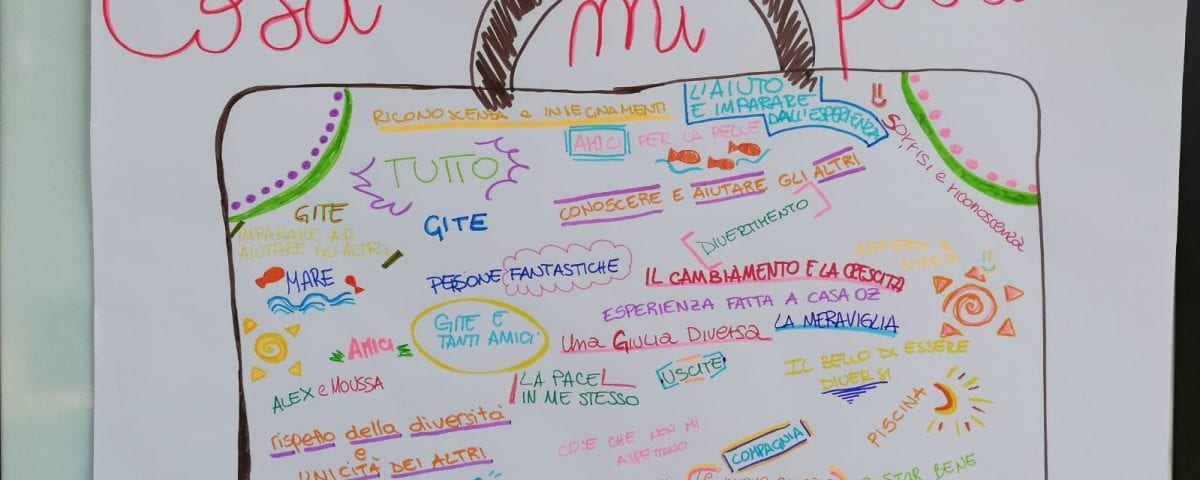 Cosa mi
RICONOSCENZA e INSEGNAMENTI
L'AIUTO
E IMPARARE
DALL'ESPERIENZA
AMICI PER LA PELLE
SORRISI e riconoscenza
TUTTO
CONOSCERE E AIUTARE GLI ALTRI
GITE
GITE
IMPARARE AD
AIUTARE GLI ALTRI
DIVERTIMENTO
MARE
PERSONE FANTASTICHE
IL CAMBIAMENTO E LA CRESCITA
AFFETTO E
SORRISI
ESPERIENZA FATTA A CASA OZ
GITE E
TANTI AMICI
Una GIULIA DIVERSA
LA MERAVIGLIA
AMICI
USCITE
IL BELLO DI ESSERE
DIVERSI
ALEX e MOUSSA
LA PACE
IN ME STESSO
PISCINA
rispetto della diversità
e
UNICITÀ DEI ALTRI
COSE CHE NON MI
ASPETTAVO
COMPAGNIA
STAR BENE